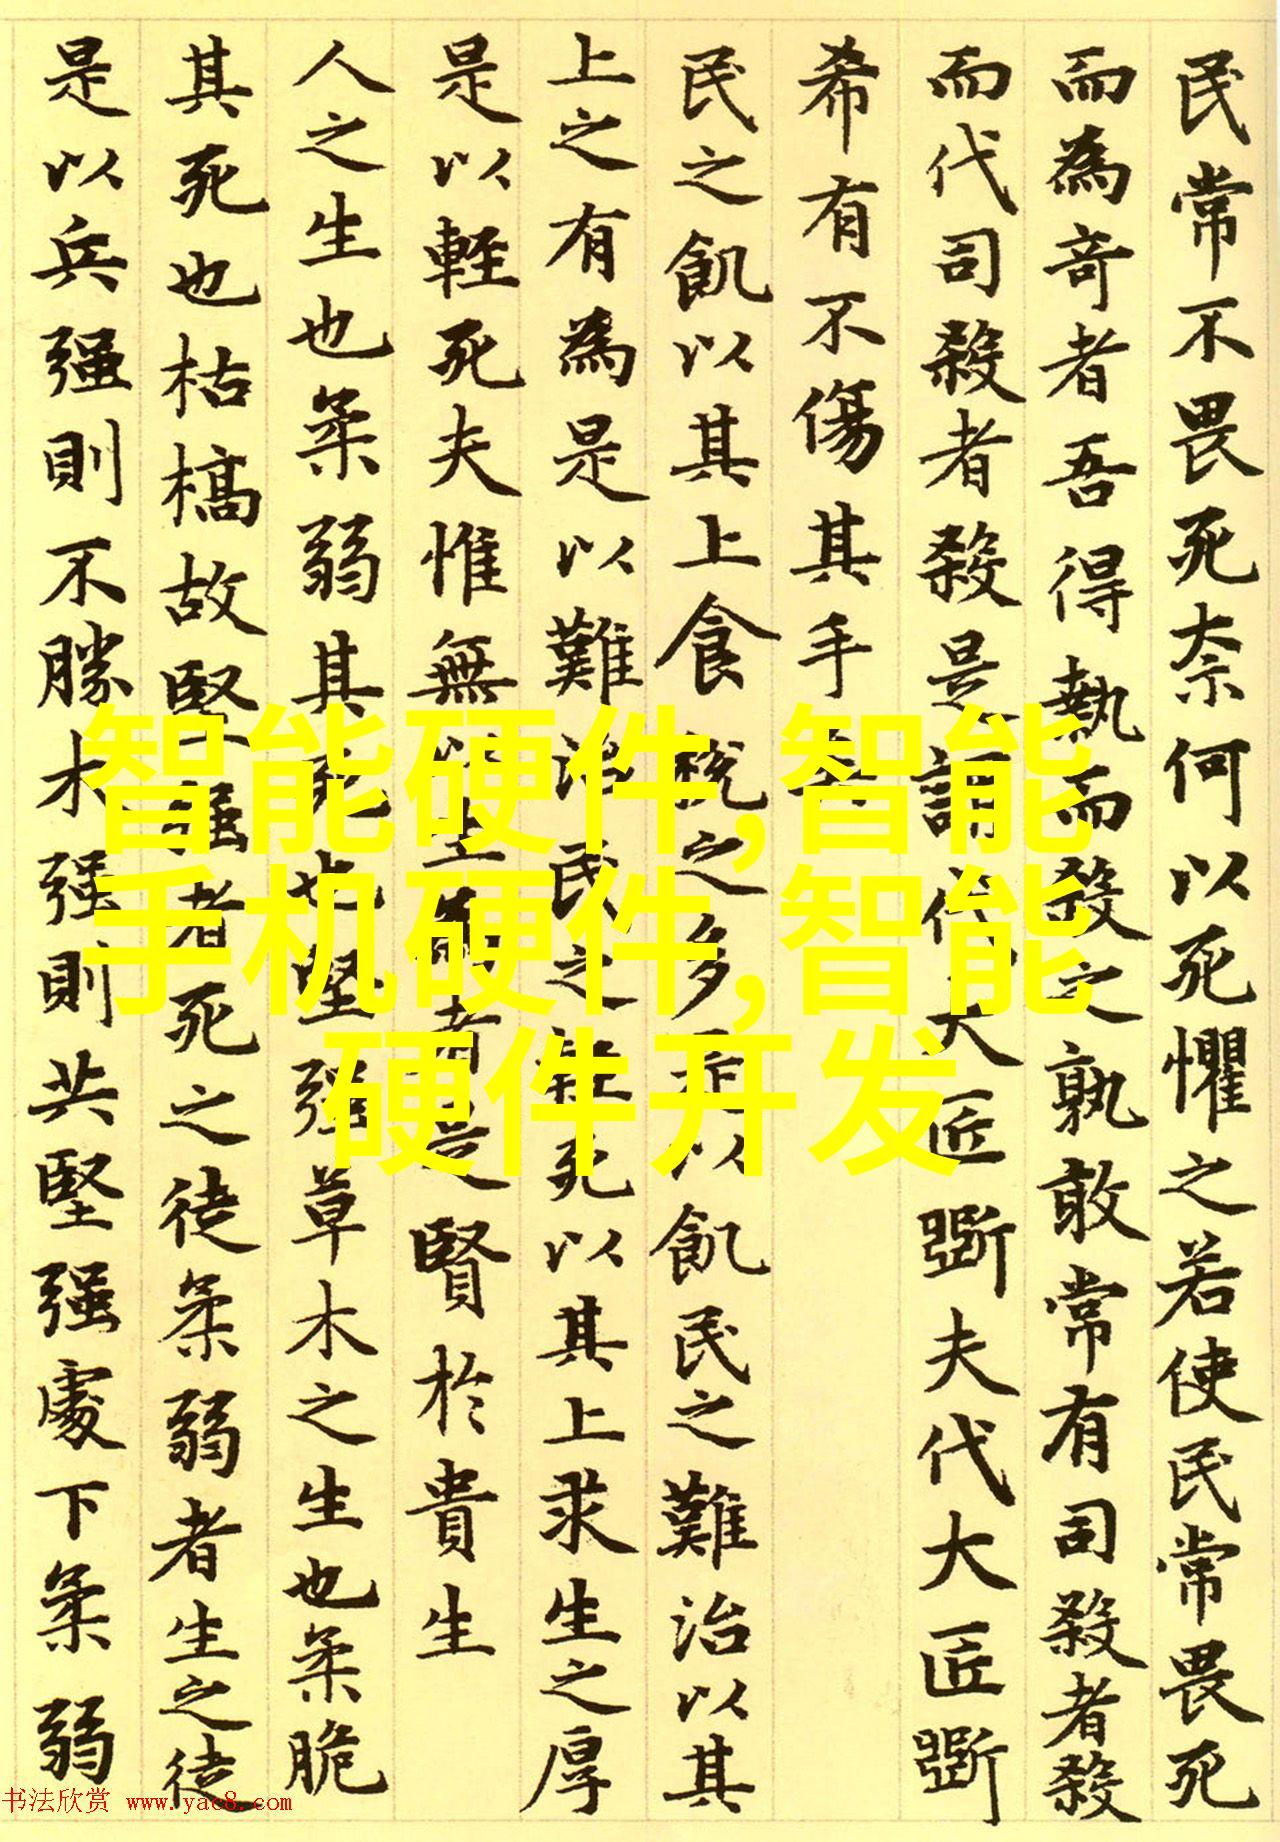 民常不畏死奈何以死懼之若使民常畏死
而為奇者吾得執而殺之孰敢常有司殺者殺
而代司殺者殺是謂代大匠斲夫代大匠斲
希有不傷其手矣
民之飢以其上食税之多是以飢民之難治以其
上之有為是以難治民之輕死以其上求生之厚
是以輕死夫惟無以生為者是賢於貴生
人之生也柔弱其死也堅强草木之生也柔脆
其死也枯槁故堅强者死之徒柔弱者生之徒
是以兵强則不勝木强則共堅强處下柔弱
智能硬件,智能
手机硬件,智能
硬件开发
书法欣赏 www.yac8.com